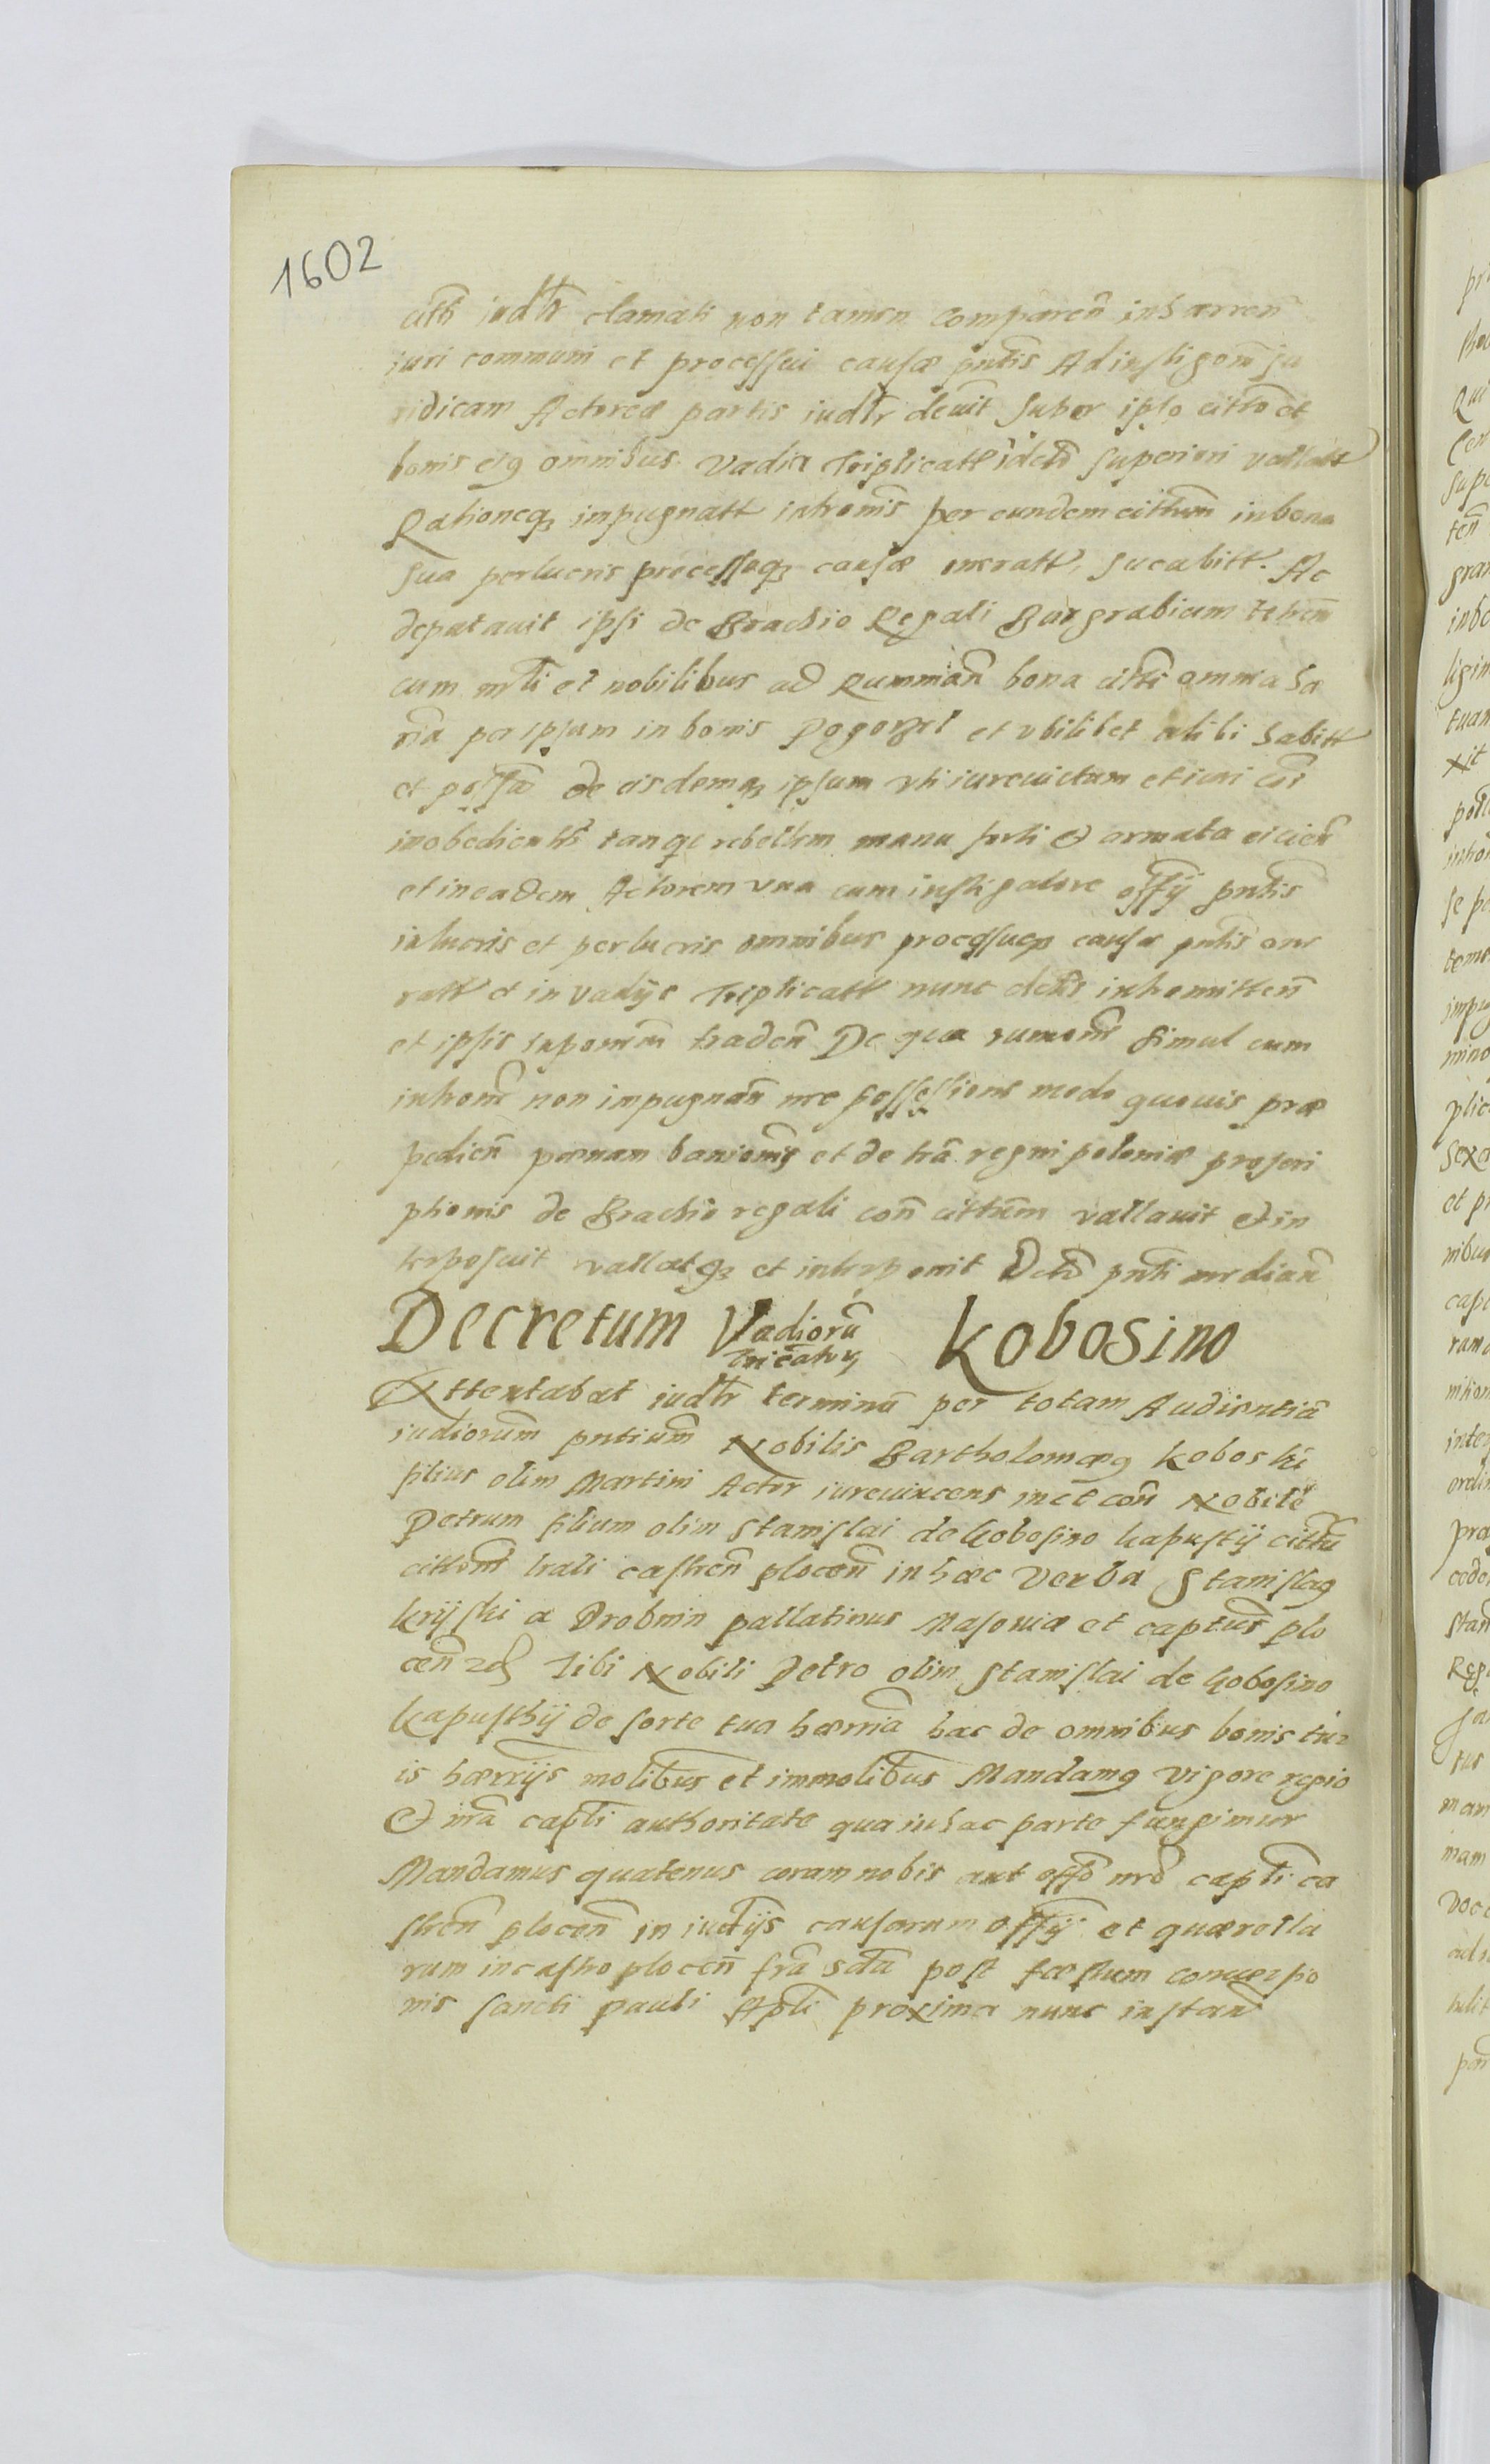 1602
citti iudltr clamati non tamen comparen inhæren
iuri communi et processui causæ pntis Ad instigonem ju
ridicam Actoreæ partis iudltr devit super ipso citto et
bonis eig omnibus vadia triplicatt i deto superiori vallatt
Rationeq impugnatt intromis per eundem cittum in bona
sua perlucris processuq causæ oneratt succubitt. Ac
deputavit ipsi de Brachio Regali Burgrabium
cum mrli et nobilibus ad Rummian bona citti omnia hæ
ria per ipsum in bonis Pogorzel et vbilibet alibi habitt
et possa de eisdemq ipsum vti iurevictum et iuri coi
inobedientem tanq rebellem manu forti et armata eicien
et in eadem Actorem vna cum instigatore offy pntis
in lucris et perlucris omnibus processuq causæ pntis one
ratt et in vadijs triplicatt nunc detis intromitten
et ipsis in possionem traden De qua rumone simul cum
introme non impugnan nec possessione modo quovis præ
pedien pœnam banionis et de tra regni poloniæ proscri
ptionis de Brachio regali con cittum vallavit et in
terposuit vallatq et interponit Deto pnti median
Decretum Vadiorū Kobosino
tricatus
Attentabat iudltr terminū per totam Audientiā
iudiorum pntium Nobilis Bartholomæg Koboski
filius olim Martini Actor iurevincens inct con Nobilē
Petrum filium olim Stanislai de Kobosino Kapustij cittū
cittom trali castren plocen in hæc verba Stanislag
kryski a Drobnin pallatinus Masoviæ et captus plo
cen Tibi Nobili Petro olim Stanislai de Kobosino
Kapusthij de sorte tua hærria hac de omnibus bonis tu
is hærrijs molibus et immolibus Mandamg vigore regio
et nra capli authoritate qua in hac parte fungimur
Mandamus quatenus coram nobis aut offo nro capli ca
stren plocen in iudijs causarum offij et quærella
rum in castro plocen fra scda post fæstum conversio
nis sancti pauli Apli proxima nunc instan